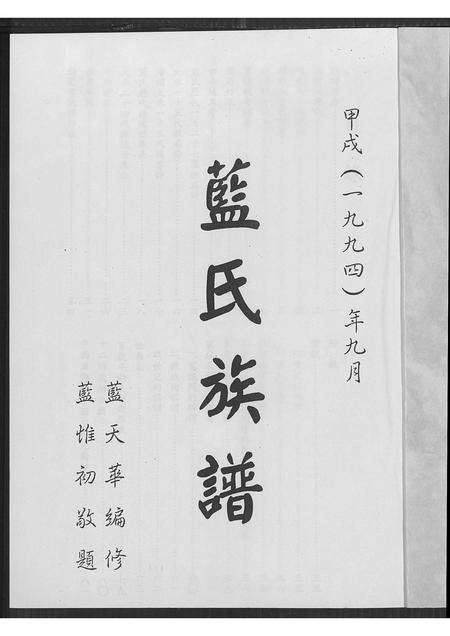 甲戌(一九九四)年九月
藍氏族譜
藍天華編修
藍惟初敬題